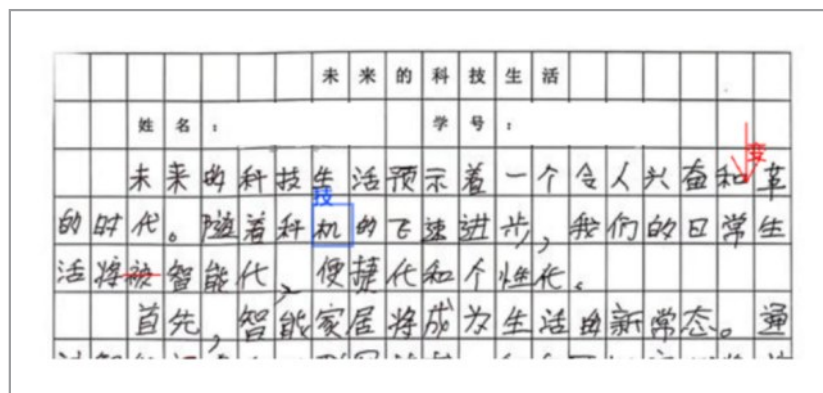 未来的科技生活
姓名： 学号：
变
未来的科技生活预示着一个令人兴奋和革
技
的时代。随着科机的飞速进步，我们的日常生
活将被智能代、便捷代和个性化。
首先，智能家居将成为生活由新常态。通